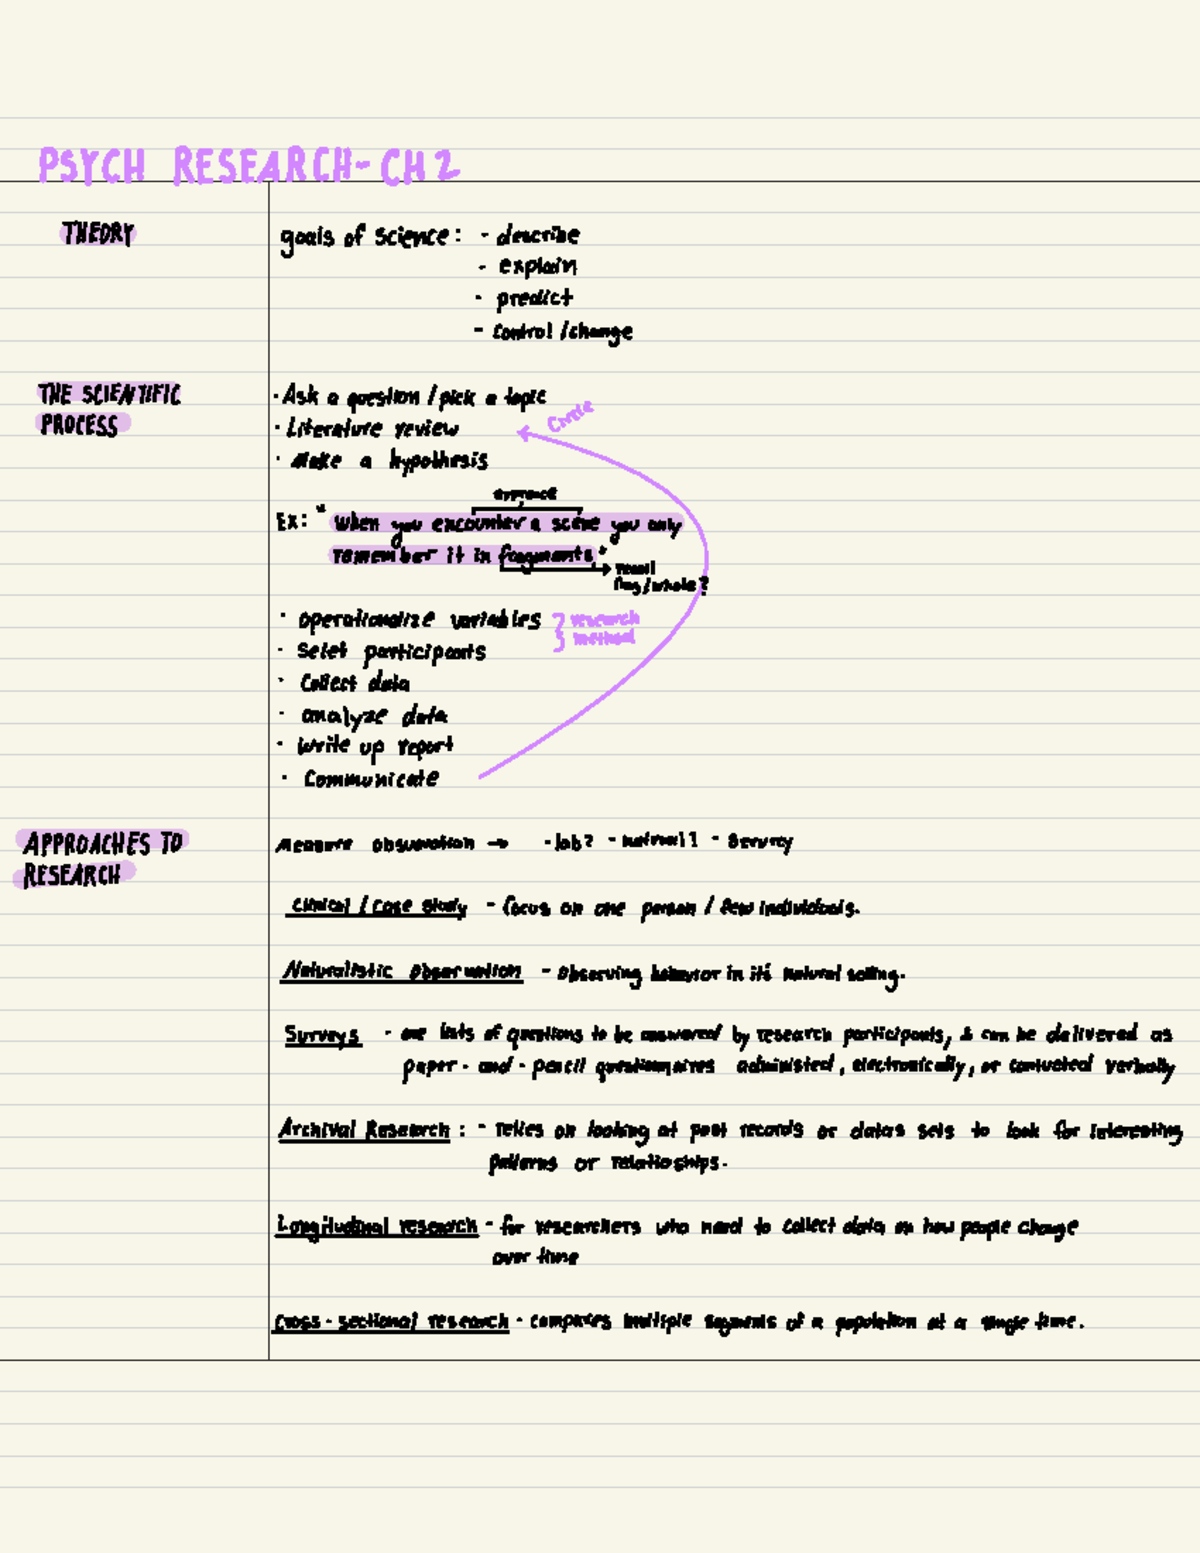 PSYCH RESEARCH - CH 2
THEORY
goals of science: - describe
- explain
- predict
- control / change
THE SCIENTIFIC
PROCESS
· Ask a question / pick a topic
· Literature review
Circle
· Make a hypothesis
Ex: "When you encounter a scene you only
remember it in fragments"
frag/whole?
· operationalize variables
research
method
· Selet participants
· Collect data
· analyze data
· Write up report
· Communicate
APPROACHES TO
RESEARCH
Measure observation → - lab? - natural? - Survey
Clinical / case study - focus on one person / few individuals.
Naturalistic observation - observing behavior in it's natural setting.
Surveys - are lists of questions to be answered by research participants, & can be delivered as
paper - and - pencil questionnaires administed, electronically, or conducted verbally
Archival Research: - relies on looking at past records or datas sets to look for interesting
patterns or relatioships.
Longitudinal research - for researchers who need to collect data on how people change
over time
Cross - sectional research - compares multiple segments of a population at a single time.